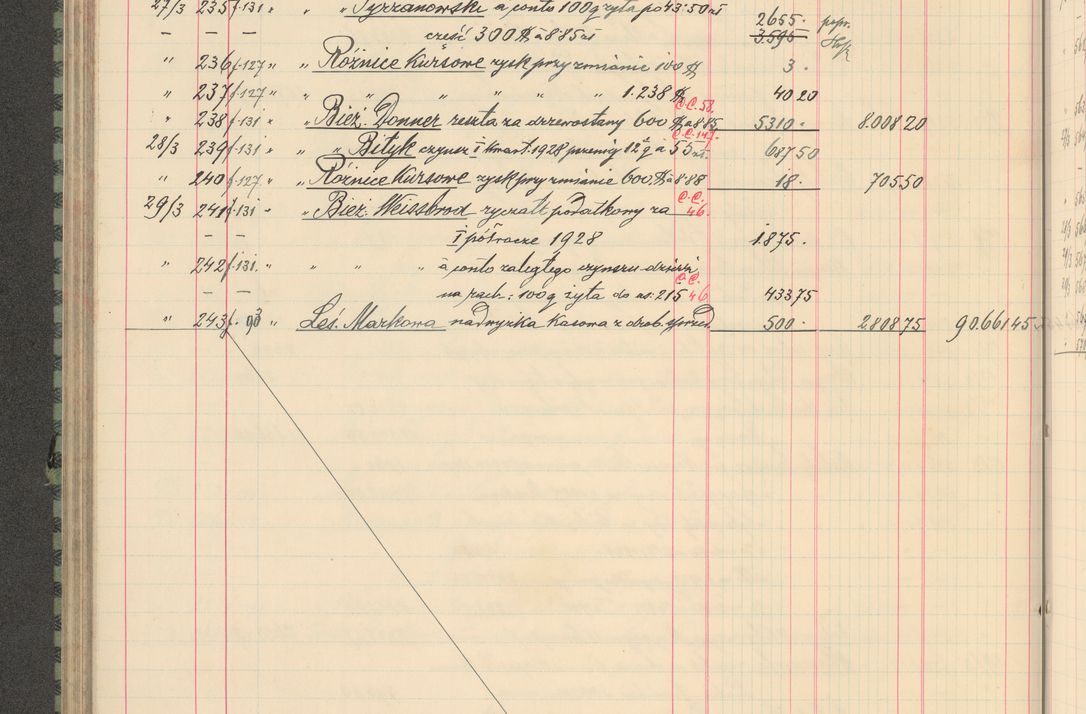 27/3 235 f. 131 " " Tyrzanowski a conto 100 q żyta po 43·50 zł
— — — część 300 $ à 8·85 zł 2655· popr.
3.595
" 236 f. 127 " " Różnice Kursowe zysk przy zmianie 100 $ 3·
" 237 f. 127 " " " " " " " 1.238 $ 40 20
C.C. 58.
" 238 f. 131 " " Bież. Donner reszta za drzewostany 600 $ à 8·85 5310· 8.008 20
C.C. 147.
28/3 239 f. 131 " " " Bityk czynsz I kwart. 1928 przemiy 12½ q à 55 zł. 687 50
" 240 f. 127. " " Różnice Kursowe zysk przy zmianie 600 $ à 8·88 18· 705.50
29/3 241 f. 131 " Bież. Weissbrod ryczałt podatkowy za C.C. 46.
— — I półrocze 1928 1.875·
" 242 f. 131. " " " " à conto zaległego czynszu dzierż.
C.C.
— — na rach.: 100 q żyta do zł: 215 46 433 75
" 243 f. 93 " " Leś. Markowa nadwyżka Kasowa z drob. sprzed. 500· 2.808 75 90.661 45